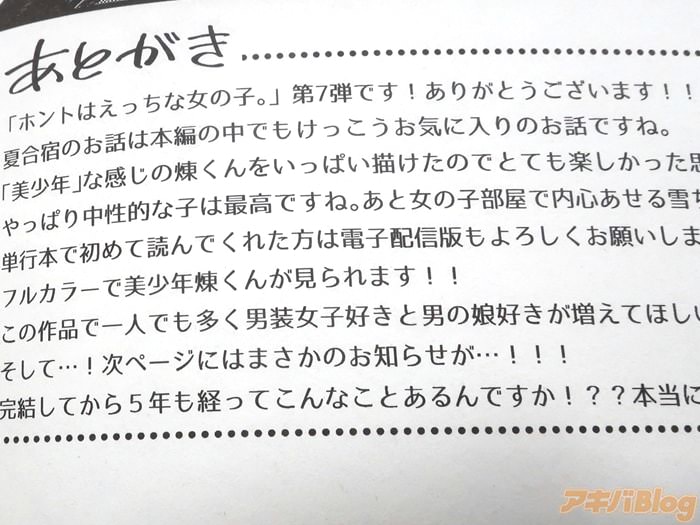 あとがき
「ホントはえっちな女の子。」第7弾です！ありがとうございます！！
夏合宿のお話は本編の中でもけっこうお気に入りのお話ですね。
「美少年」な感じの煉くんをいっぱい描けたのでとても楽しかった思
やっぱり中性的な子は最高ですね。あと女の子部屋で内心あせる雪ち
単行本で初めて読んでくれた方は電子配信版もよろしくお願いしま
フルカラーで美少年煉くんが見られます！！
この作品で一人でも多く男装女子好きと男の娘好きが増えてほしい
そして…！次ページにはまさかのお知らせが…！！！
完結してから５年も経ってこんなことあるんですか！？？本当に
アキバBlog